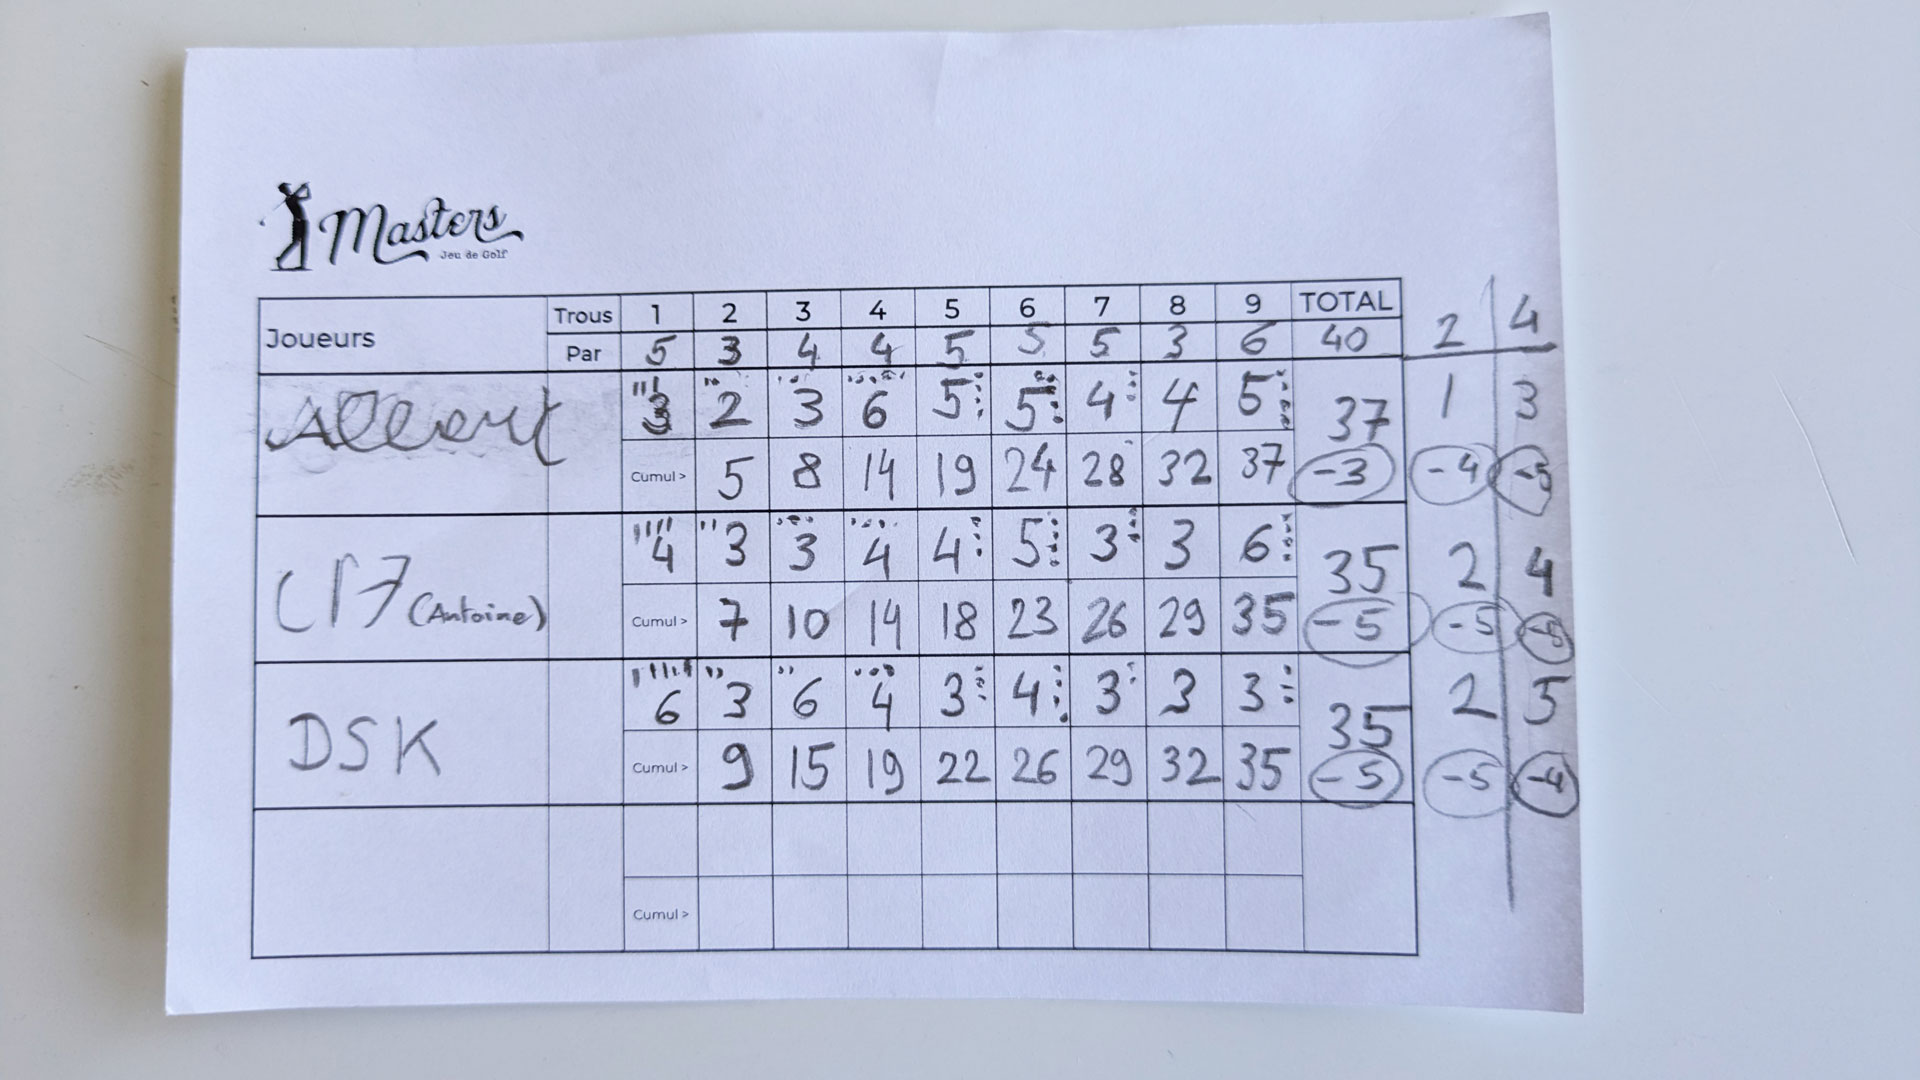 Masters
Jeu de Golf
Joueurs Trous 1 2 3 4 5 6 7 8 9 TOTAL 2 4
Par 5 3 4 4 5 5 5 3 6 40
Albert 3 2 3 6 5 5 4 4 5 37 1 3
Cumul > 5 8 14 19 24 28 32 37 -3 -4
(Antoine) 4 3 3 4 4 5 3 3 6 35 2 4
Cumul > 7 10 14 18 23 26 29 35 -5 -5 -5
DSK 6 3 6 4 3 4 3 3 3 35 2 5
Cumul > 9 15 19 22 26 29 32 35 -5 -5 -4
Cumul >